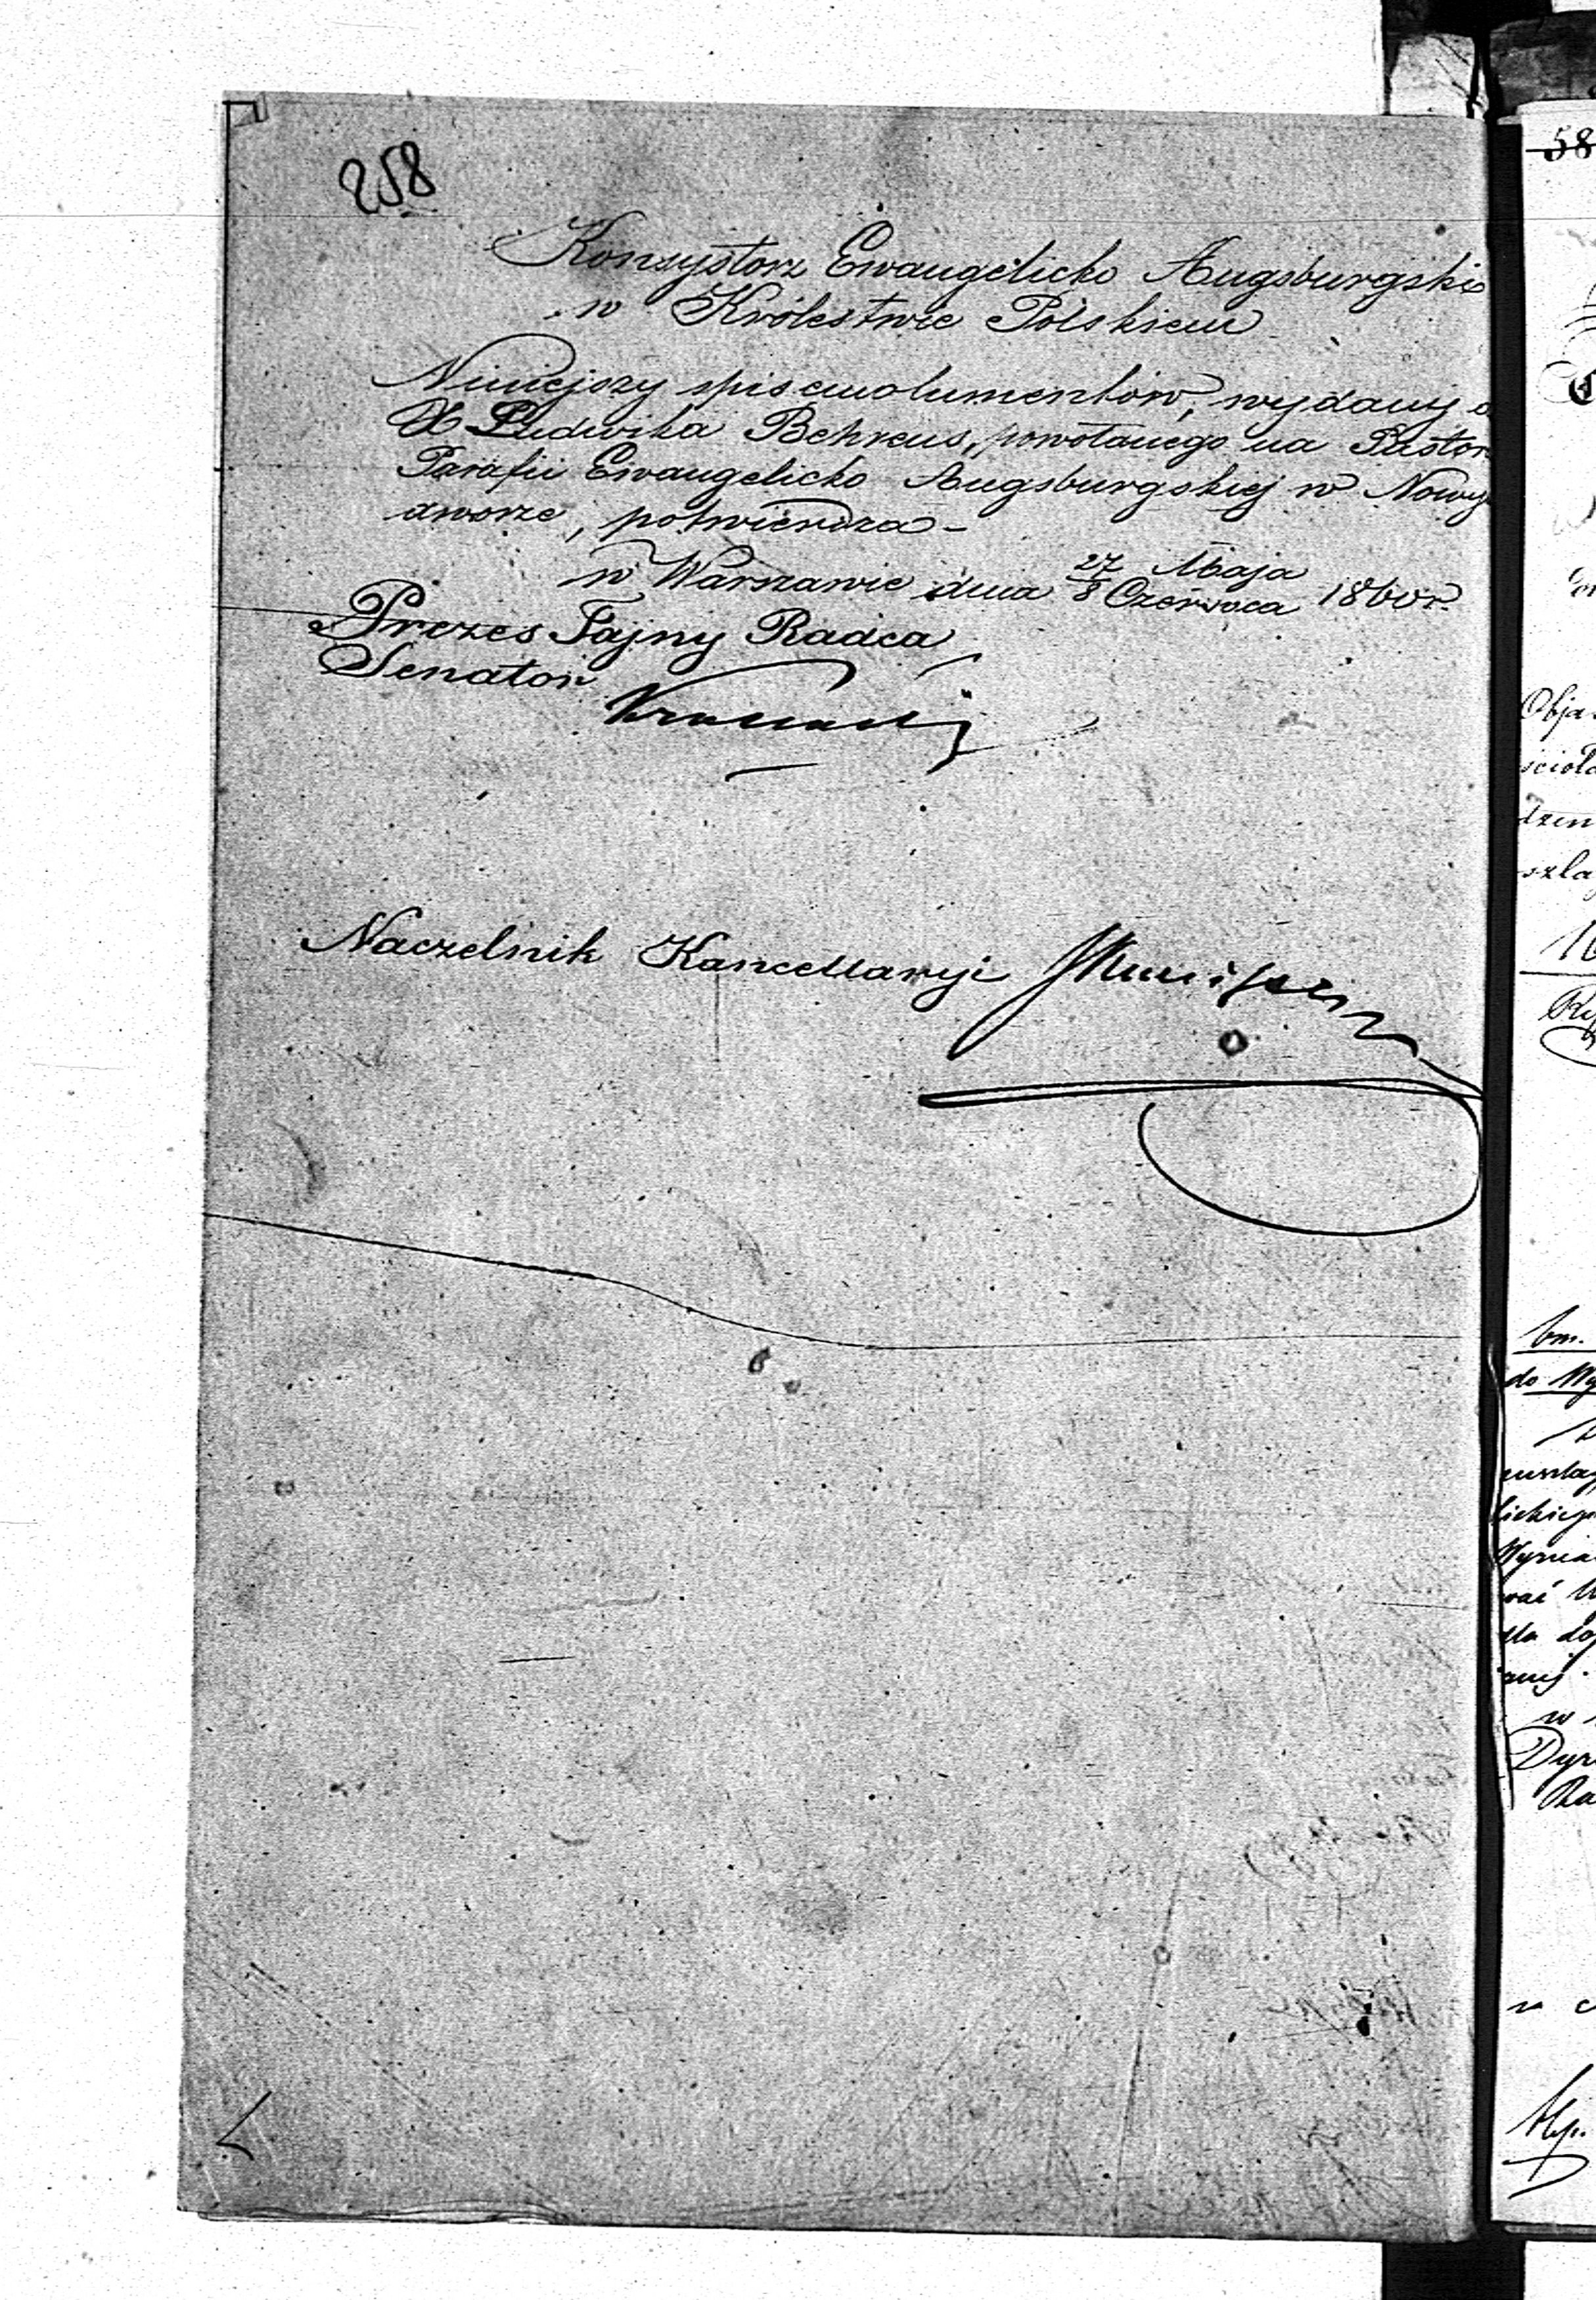 258
Konsystorz Ewangelicko Augsburgski
w Królestwie Polskiem
Niniejszy spis emolumentów, wydany
X Ludwika Behrens, powołanego na Pastor
Parafii Ewangelicko Augsburgskiej w Nowy
dworze, potwierdza –
w Warszawie dnia 27 Maja / 8 Czerwca 1860 r.
Prezes Tajny Radca
Senator
Naczelnik Kancellaryi
58
Obja
ścioła
dzen
szla
bm.
do Wy
w
Dyr
Ra